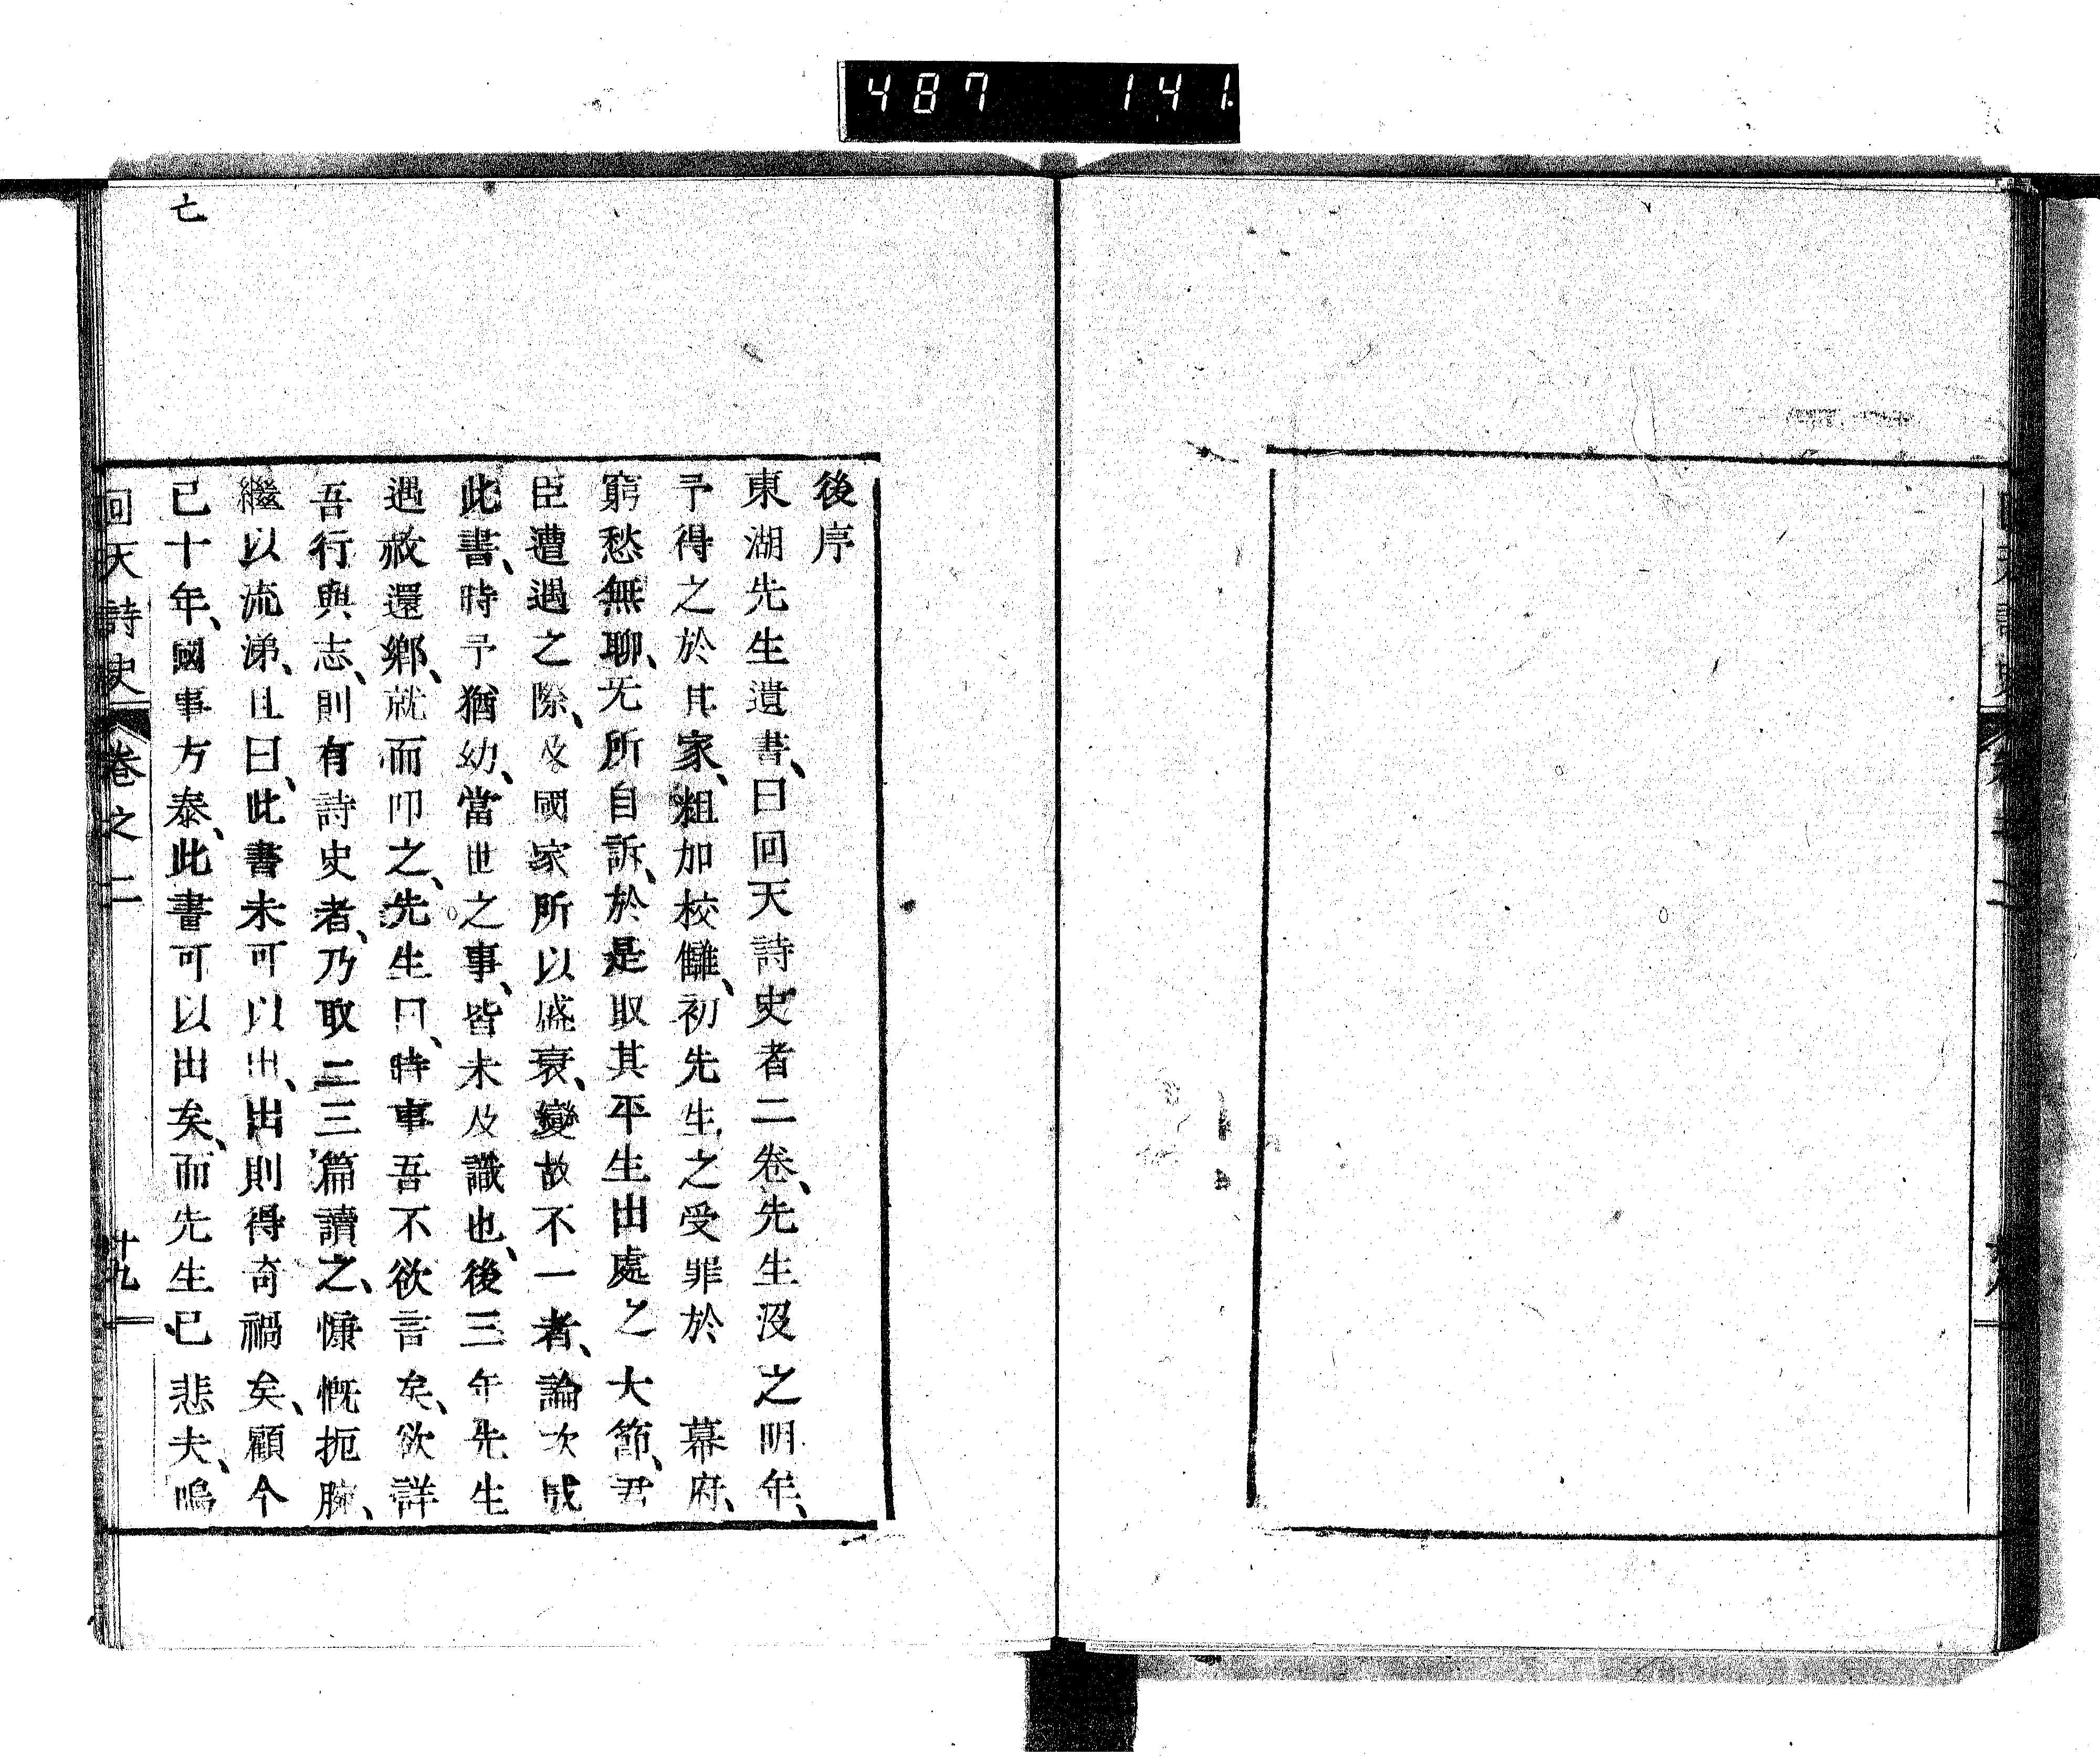 487 141
後序
東湖先生遺書、曰回天詩史者二卷、先生沒之明年、
予得之於其家、粗加校讎、初先生之受罪於　幕府、
窮愁無聊、无所自訴、於是取其平生出處之大節、君
臣遭遇之際、及國家所以盛衰、變故不一者、論次成
此書、時予猶幼、當世之事、皆未及識也、後三年先生
遇赦還鄉、就而叩之、先生曰、時事吾不欲言矣、欲詳
吾行與志、則有詩史者、乃取二三篇讀之、慷慨扼腕、
繼以流涕、且曰、此書未可以出、出則得奇禍矣、顧今
已十年、國事方泰、此書可以出矣、而先生已悲夫、嗚
亡
回天詩史 卷之二 十九